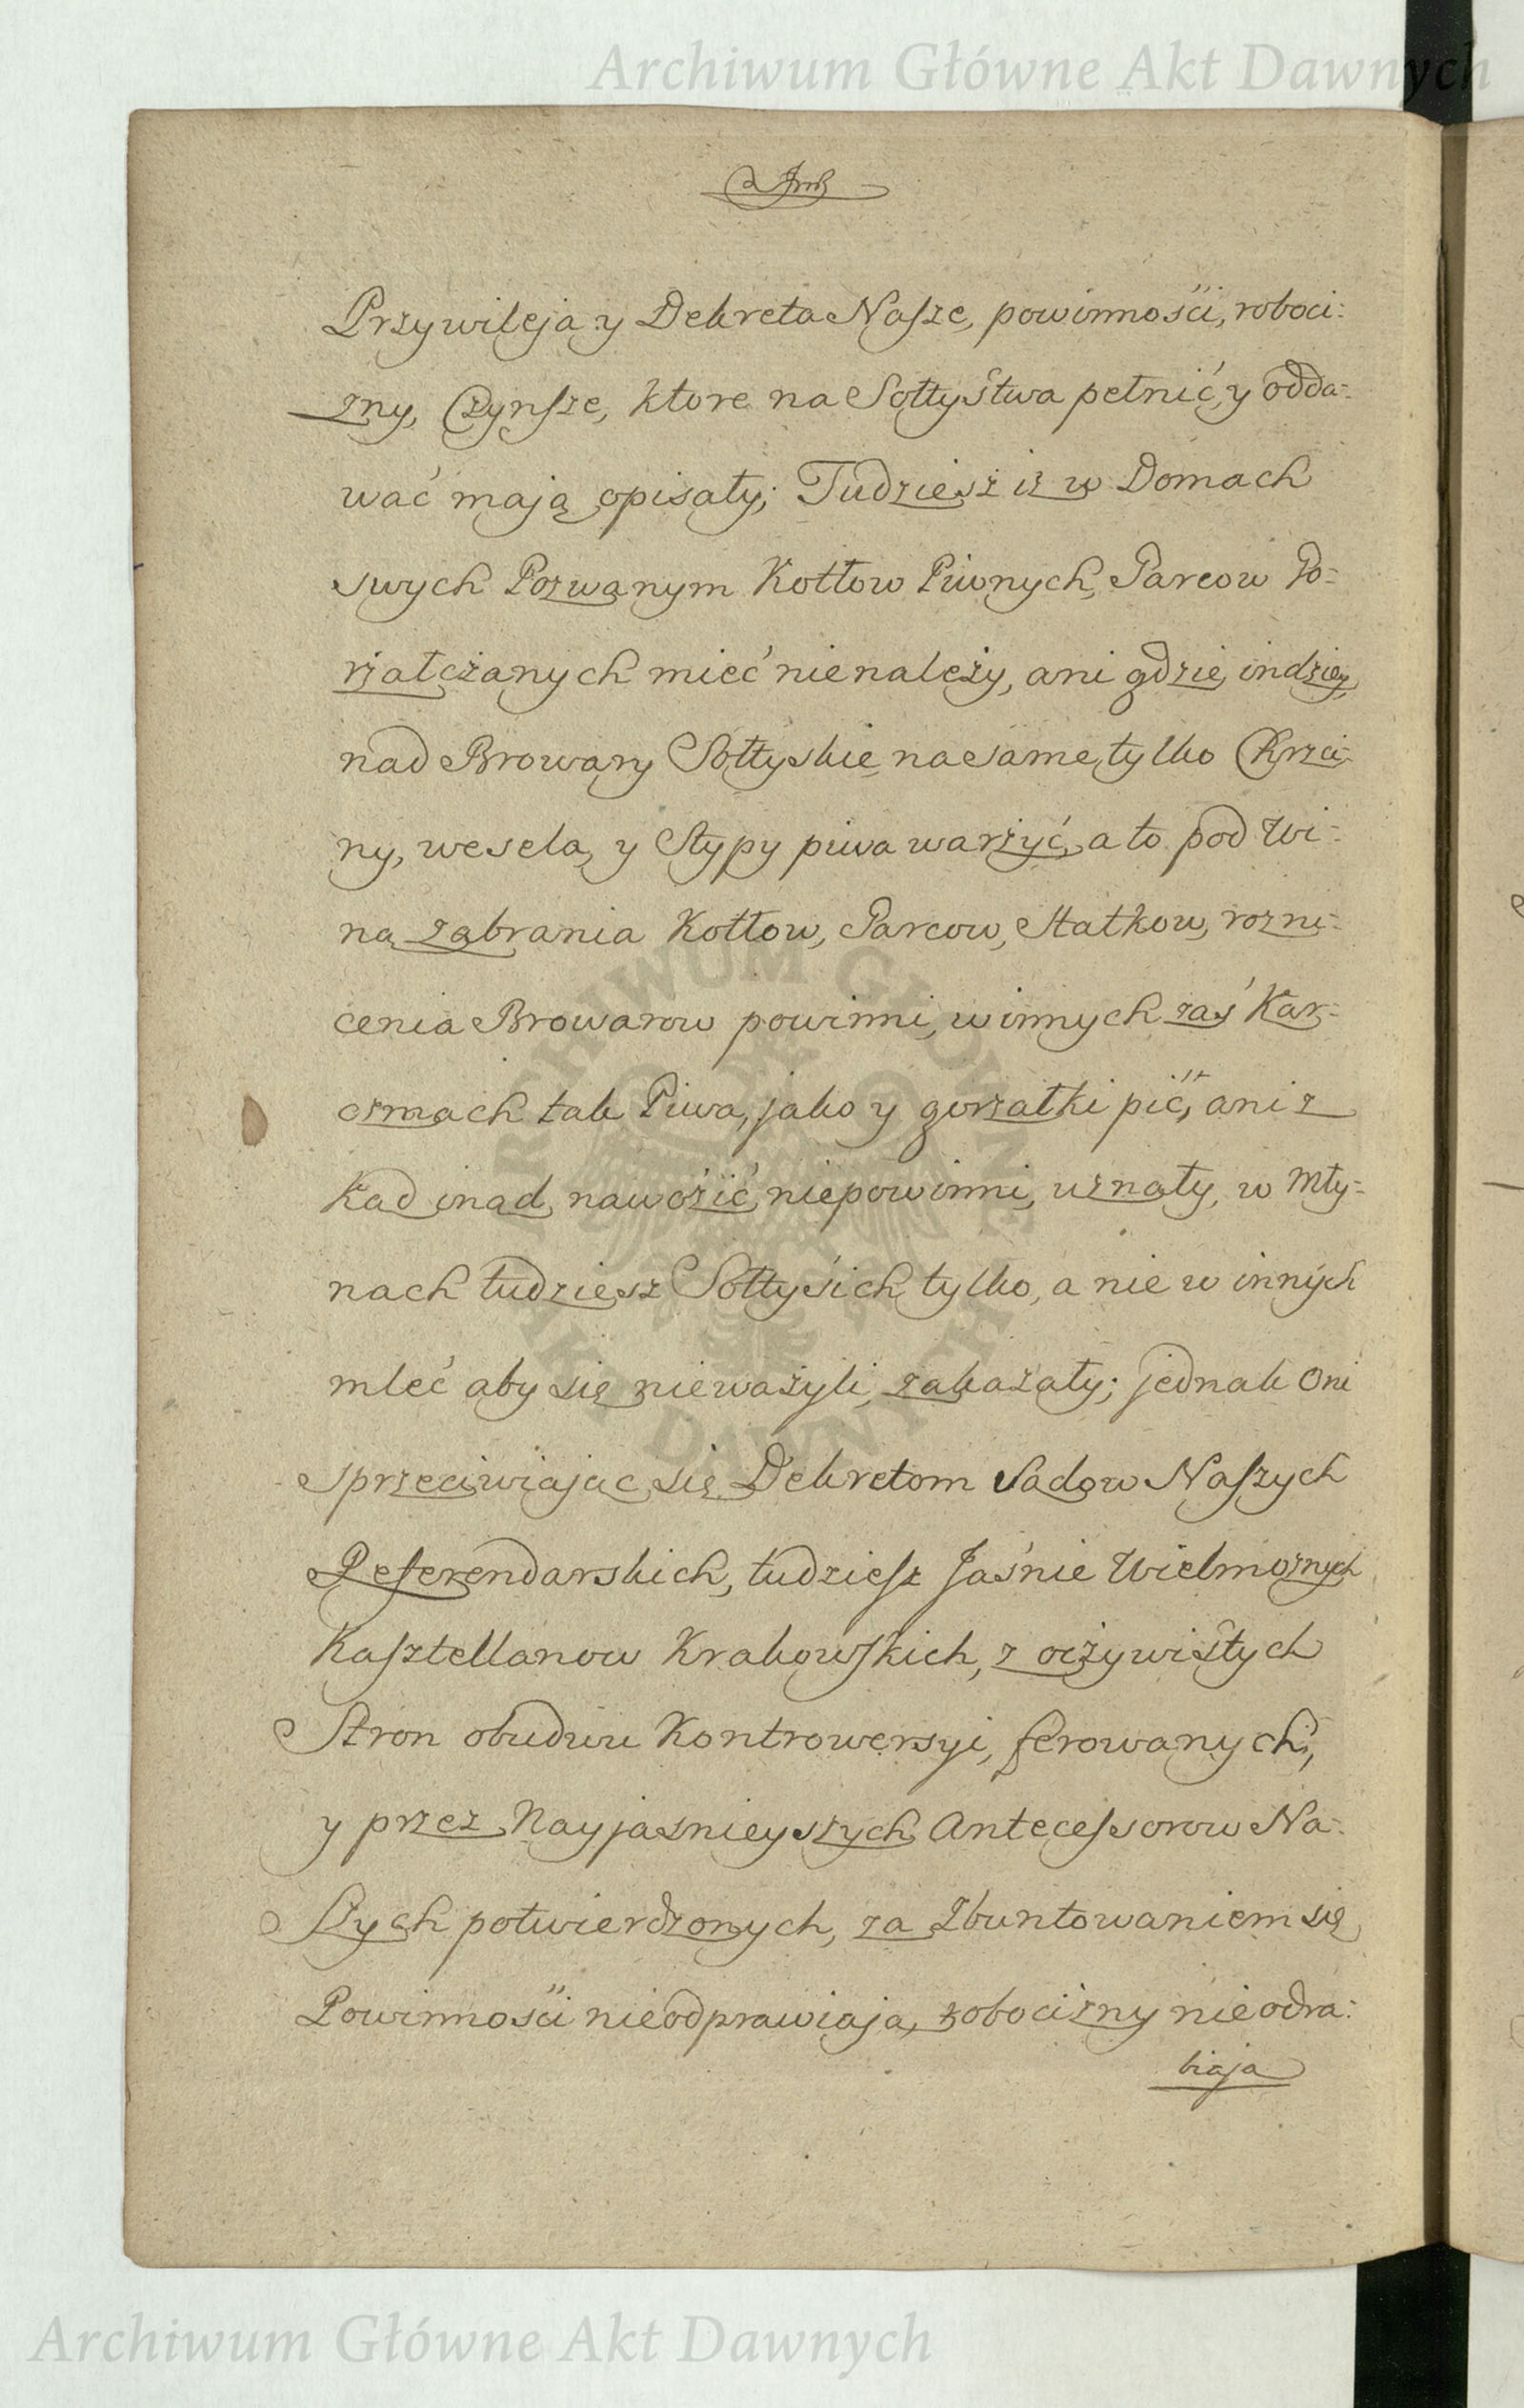 Archiwum Główne Akt Dawnych
Przywileja y Dekreta Nasze, powinności, roboci:
zny, Czynsze, ktore na Sołtystwa pełnić, y odda:
wać mają opisały; Tudziesz iz w Domach
swych Pozwanym Kotłow Piwnych, Parcow Po:
rzałczanych mieć nienależy, ani gdzie indziey,
nad Browary Sołtyskie na same tylko Chrzci:
ny, wesela, y Stypy piwa warzyć, a to pod Wi:
ną zabrania Kotłow, Parcow, Statkow, rozni:
cenia Browarow powinni, w innych zaś Kar:
czmach tak Piwa, jako y gorzałki pić, ani z
kąd inąd nawozić niepowinni, uznały, w Mły:
nach tudziesz Sołtysich tylko, a nie w innych
mleć aby się nieważyli, zakazały; jednak oni
sprzeciwiając się Dekretom Sądow Naszych
Referendarskich, tudziesz Jaśnie Wielmożnych
Kasztellanow Krakowskich, z oczywistych
Stron obudwu Kontrowersyi, ferowanych,
y przez Nayjasnieyszych Antecessorow Na:
Szych potwierdzonych, za Zbuntowaniem się
Powinności nieodprawiają, robocizny nieodra:
biają
ARCHIWUM GŁÓWNE AKT DAWNYCH
Archiwum Główne Akt Dawnych